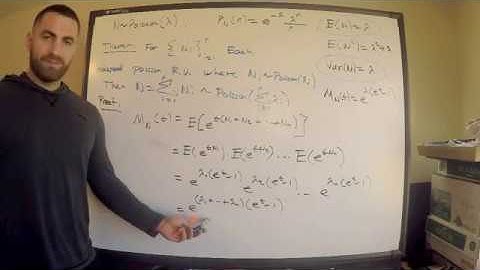 N~Poisson(λ) P_N(n) = e^{-λ} λ^n E(N) = λ
Theorem: For {N_i}_{i=1}^n Each E(N²) = λ²+λ
independent Poisson R.V. where N_i ~ Poisson(λ_i) Var(N) = λ
Then N = Σ_{i=1}^n N_i ~ Poisson(Σ_{i=1}^n λ_i) M_N(t) = e^{λ(e^t-1)}
Proof:
M_N(t) = E[e^{t(N_1+N_2+...+N_n)}]
= E(e^{tN_1}) E(e^{tN_2}) ... E(e^{tN_n})
= e^{λ_1(e^t-1)} e^{λ_2(e^t-1)} ... e^{λ_n(e^t-1)}
= e^{(λ_1+...+λ_n)(e^t-1)}